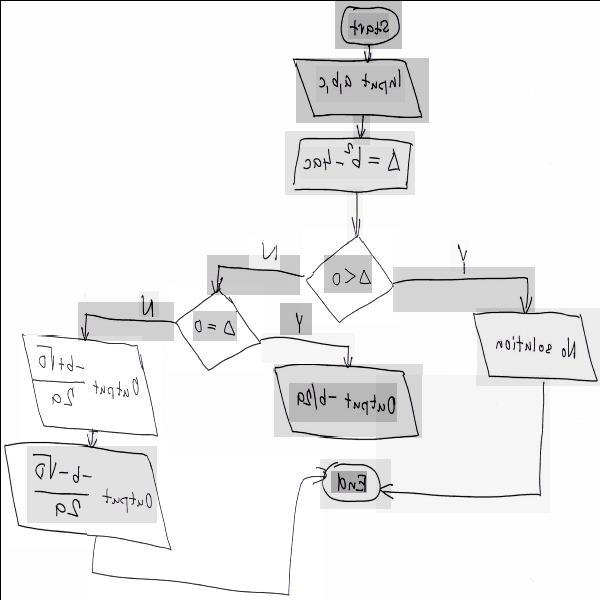 Start
Input a,b,c
Δ = b² - 4ac
Δ < 0
N
Y
Δ = 0
N
Y
No solution
Output -b+√D
2a
Output -b/2a
Output -b-√D
2a
End